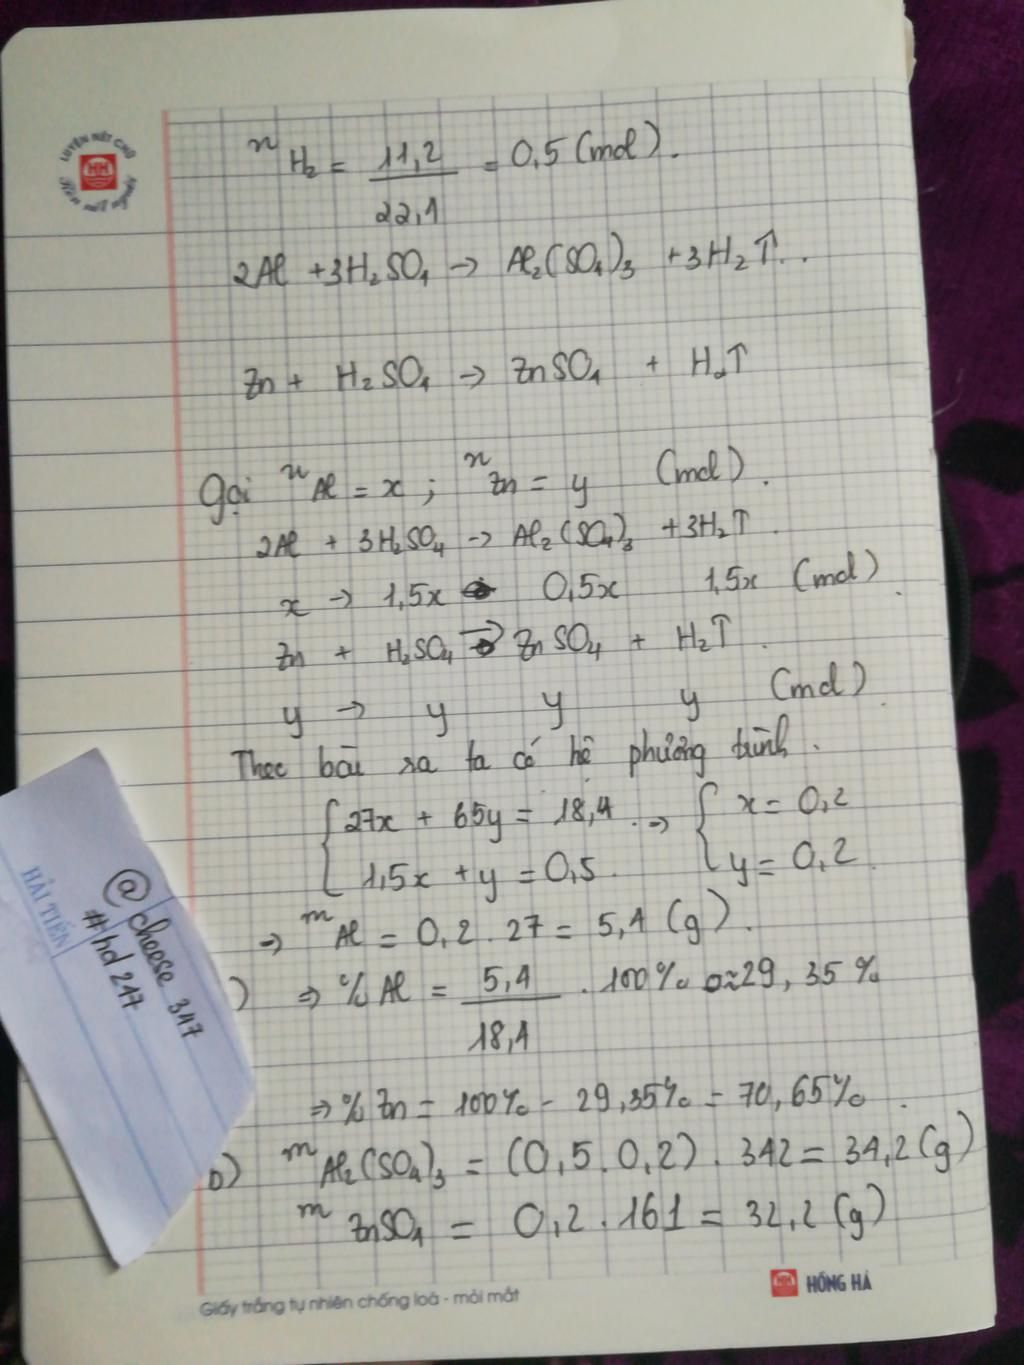 LUYỆN NÉT CHỮ
HH
Rèn nết người
n H₂ = 11,2 / 22,4 = 0,5 (mol).
2Al + 3H₂SO₄ → Al₂(SO₄)₃ + 3H₂↑..
Zn + H₂SO₄ → ZnSO₄ + H₂↑
Gọi n Al = x ; n Zn = y (mol).
2Al + 3H₂SO₄ → Al₂(SO₄)₃ + 3H₂↑.
x → 1,5x 0,5x 1,5x (mol).
Zn + H₂SO₄ → ZnSO₄ + H₂↑.
y → y y y (mol)
Theo bài ra ta có hệ phương trình.
{ 27x + 65y = 18,4 . → { x = 0,2
1,5x + y = 0,5. y = 0,2.
→ m Al = 0,2 . 27 = 5,4 (g).
) ⇒ % Al = 5,4 / 18,4 . 100% ≈ 29,35%
⇒ % Zn = 100% - 29,35% = 70,65%.
b) m Al₂(SO₄)₃ = (0,5 . 0,2) . 342 = 34,2 (g)
m ZnSO₄ = 0,2 . 161 = 32,2 (g)
HẢI TIẾN
@cheese 347
#hd 247
HH HỒNG HÀ
Giấy trắng tự nhiên chống loá - mỏi mắt